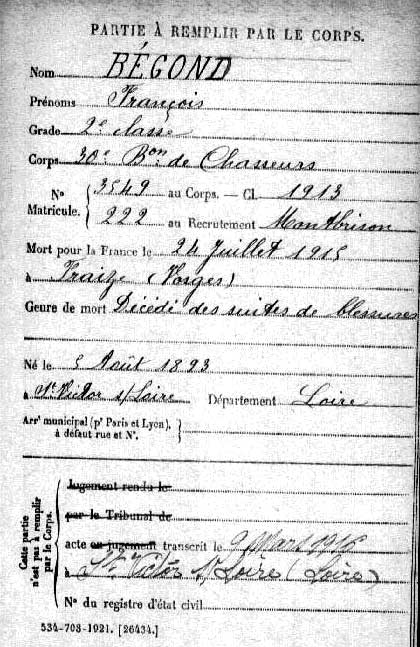 PARTIE À REMPLIR PAR LE CORPS.
Nom BÉGOND
Prénoms François
Grade 2e classe
Corps 30e Bon de Chasseurs
No Matricule. { 3549 au Corps. — Cl. 1913
222 au Recrutement Montbrison
Mort pour la France le 24 Juillet 1915
à Fraize (Vosges)
Genre de mort Décédé des suites de blessures
Né le 5 Août 1893
à St Victor s/Loire Département Loire
Arrt municipal (pr Paris et Lyon), à défaut rue et No. }
Cette partie n'est pas à remplir par le Corps.
Jugement rendu le
par le Tribunal de
acte ou jugement transcrit le 9 Mars 1916
à St Victor s/ Loire (Loire)
No du registre d'état civil
534-708-1921. [26434.]